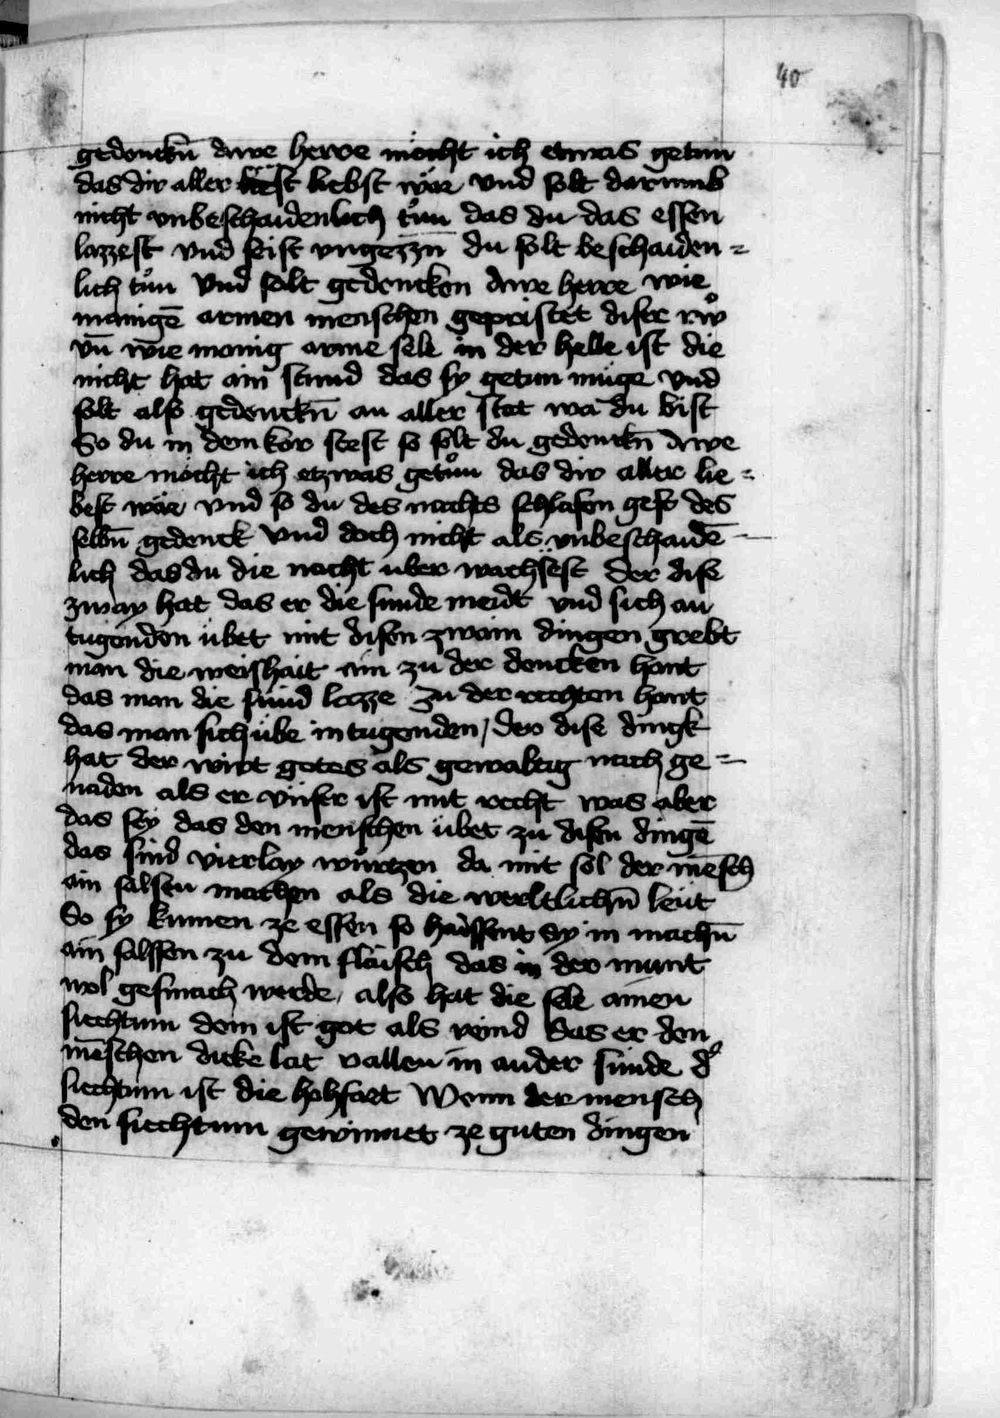 40
gedenckñ awe herre möcht ich etwas getun
das dir aller liebst wär vnd solt darumb
nicht vnbeschaidenlich tůn das du das essen
lazzest vnd seist vngezzñ du solt beschaiden =
lich tůn vnd solt gedencken awe herre wie
manigē armen menschen gepristet diser rẘ
vñ wie manig arme sele in der helle ist die
nicht hat ain stund das sy getun müge vnd
solt also gedenckñ an aller stat wa du bist
So du in dem kor stest so solt du gedenckñ Awe
herre möcht ich etzwas getůn das dir aller lie =
best wär vnd so du des nachts schlafen gest des
selbñ gedenck vnd doch nicht als vnbeschaidē
lich das du die nacht uber wachsest der dise
zway hat das er die sunde meidt vnd sich an
tugenden übet mit disen zwain dingen grebt
man die weishait ain zu der dencken hant
das man die sünd lazze zu der rechten hant
das man sich übe in tugenden / der dise dingk
hat der wirt gotes als gewaltig nach ge =
naden als er vnser ist mit recht was aber
das sey das den menschen übet zu disen dingē
das sind vierlay würtzen da mit sol der mēsch
ain salsen machen als die werltlichñ leüt
So sy kumen ze essen so haissent sy in machñ
ain salssen zu dem flaisch das in der munt
wol gesmach werde / also hat die sele ainen
siechtum dem ist got als veind das er den
mēschen dicke lat vallen in ander sünde d
siechtum ist die hohfart Wenn der mensch
den siechtum gewinnet ze guten dingen